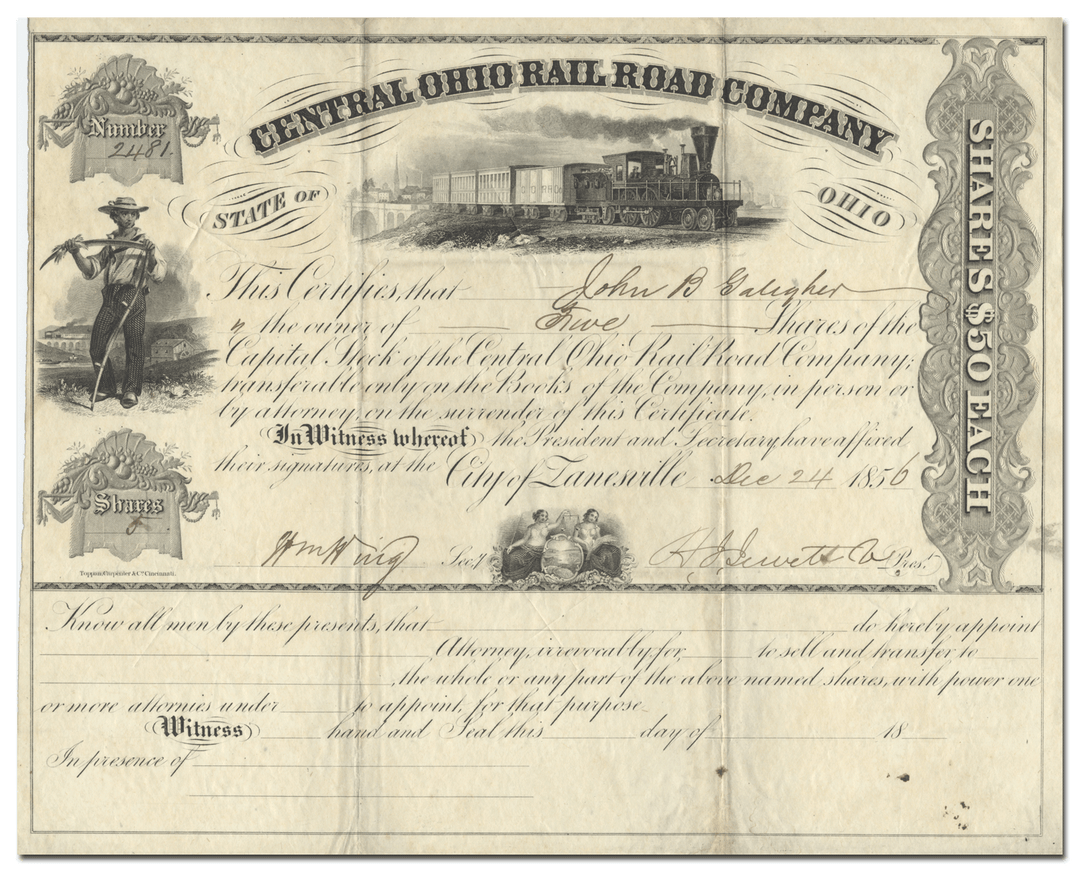 CENTRAL OHIO RAIL ROAD COMPANY
Number
2481.
STATE OF
OHIO
SHARES $50 EACH
This Certifies, that John B Galigher
is the owner of Five Shares of the
Capital Stock of the Central Ohio Rail Road Company;
transferable only on the Books of the Company, in person or
by attorney, on the surrender of this Certificate.
In Witness whereof the President and Secretary have affixed
their signatures, at the City of Zanesville Dec 24 1856
Shares
5
Wm Wing Sec.y
H J Jewett V Pres.t
Toppan, Carpenter & Co. Cincinnati.
Know all men by these presents, that do hereby appoint
Attorney, irrevocably for, to sell and transfer to
, the whole or any part of the above named shares, with power one
or more attornies under to appoint, for that purpose
Witness hand and Seal this day of 18
In presence of